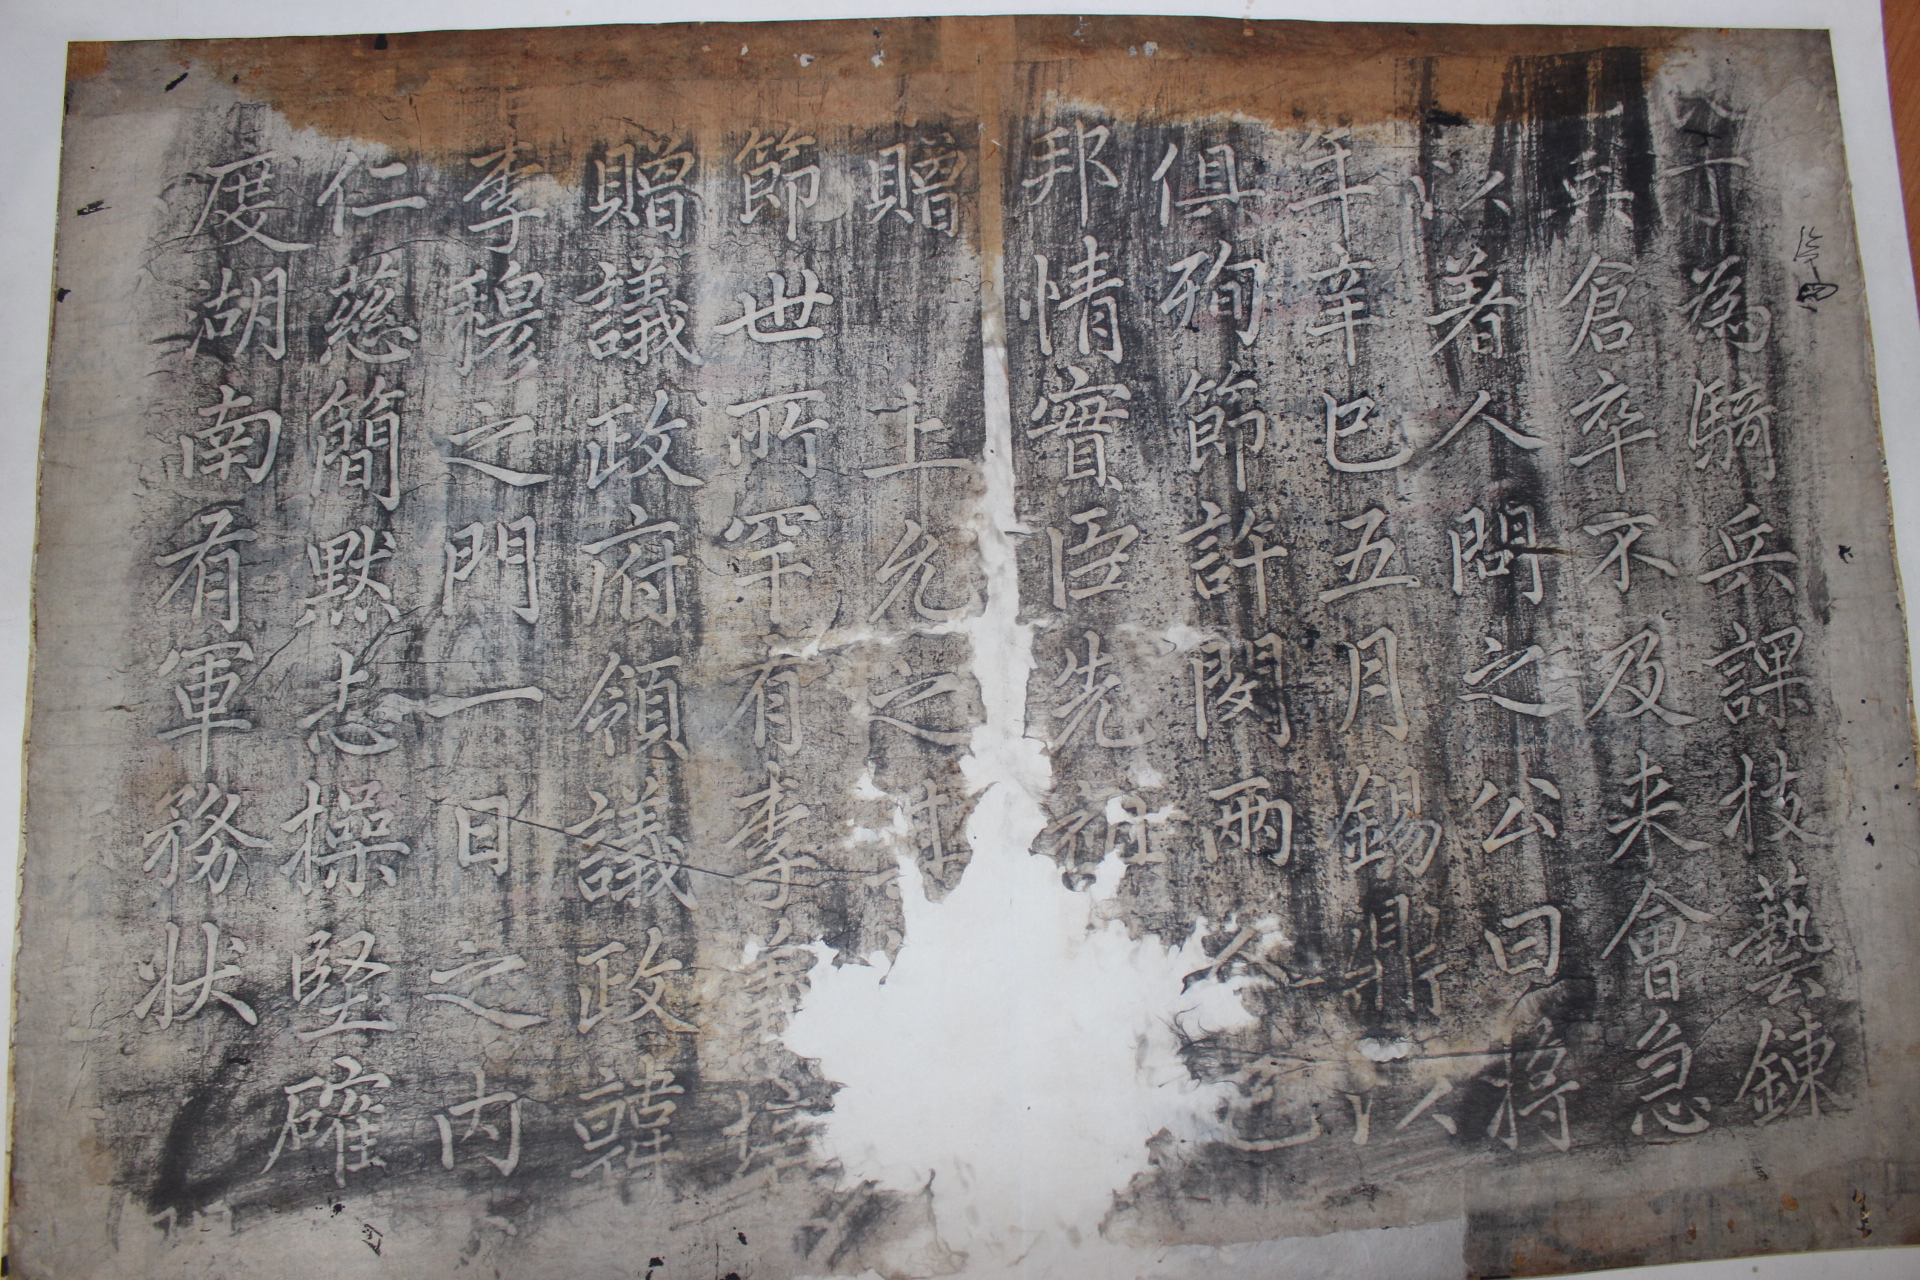 子為騎兵課技藝鍊
兵倉卒不及来會急
以著人問之公曰將
年辛巳五月錫鼎以
俱殉節許閔兩公已
邦情實臣先祖
贈上允之
節世所罕有李
贈議政府領議政韓
李穆之門一日之內
仁慈簡默志操堅確
度湖南有軍務状